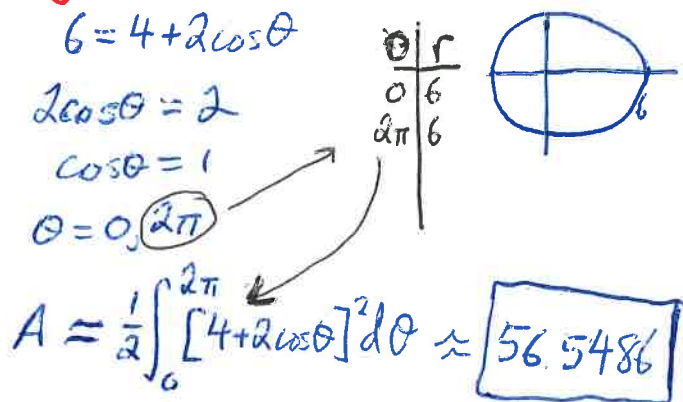 6 = 4 + 2cosθ
2cosθ = 2
cosθ = 1
θ = 0, 2π
θ | r
0 | 6
2π | 6
6
A ≈ 1/2 ∫₀^2π [4+2cosθ]² dθ ≈ 56.5486